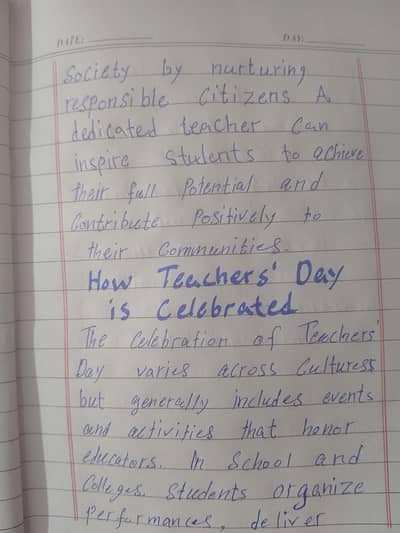 DATE:
DAY:
Society by nurturing
responsible Citizens A
dedicated teacher Can
inspire Students to achieve
their full Potential and
Contribute Positively to
their Communities.
How Teachers' Day
is Celebrated
The Celebration of Teachers'
Day varies across Culturess
but generally includes events
and activities that honor
educators. In School and
Colleges, Students organize
Performances, deliver